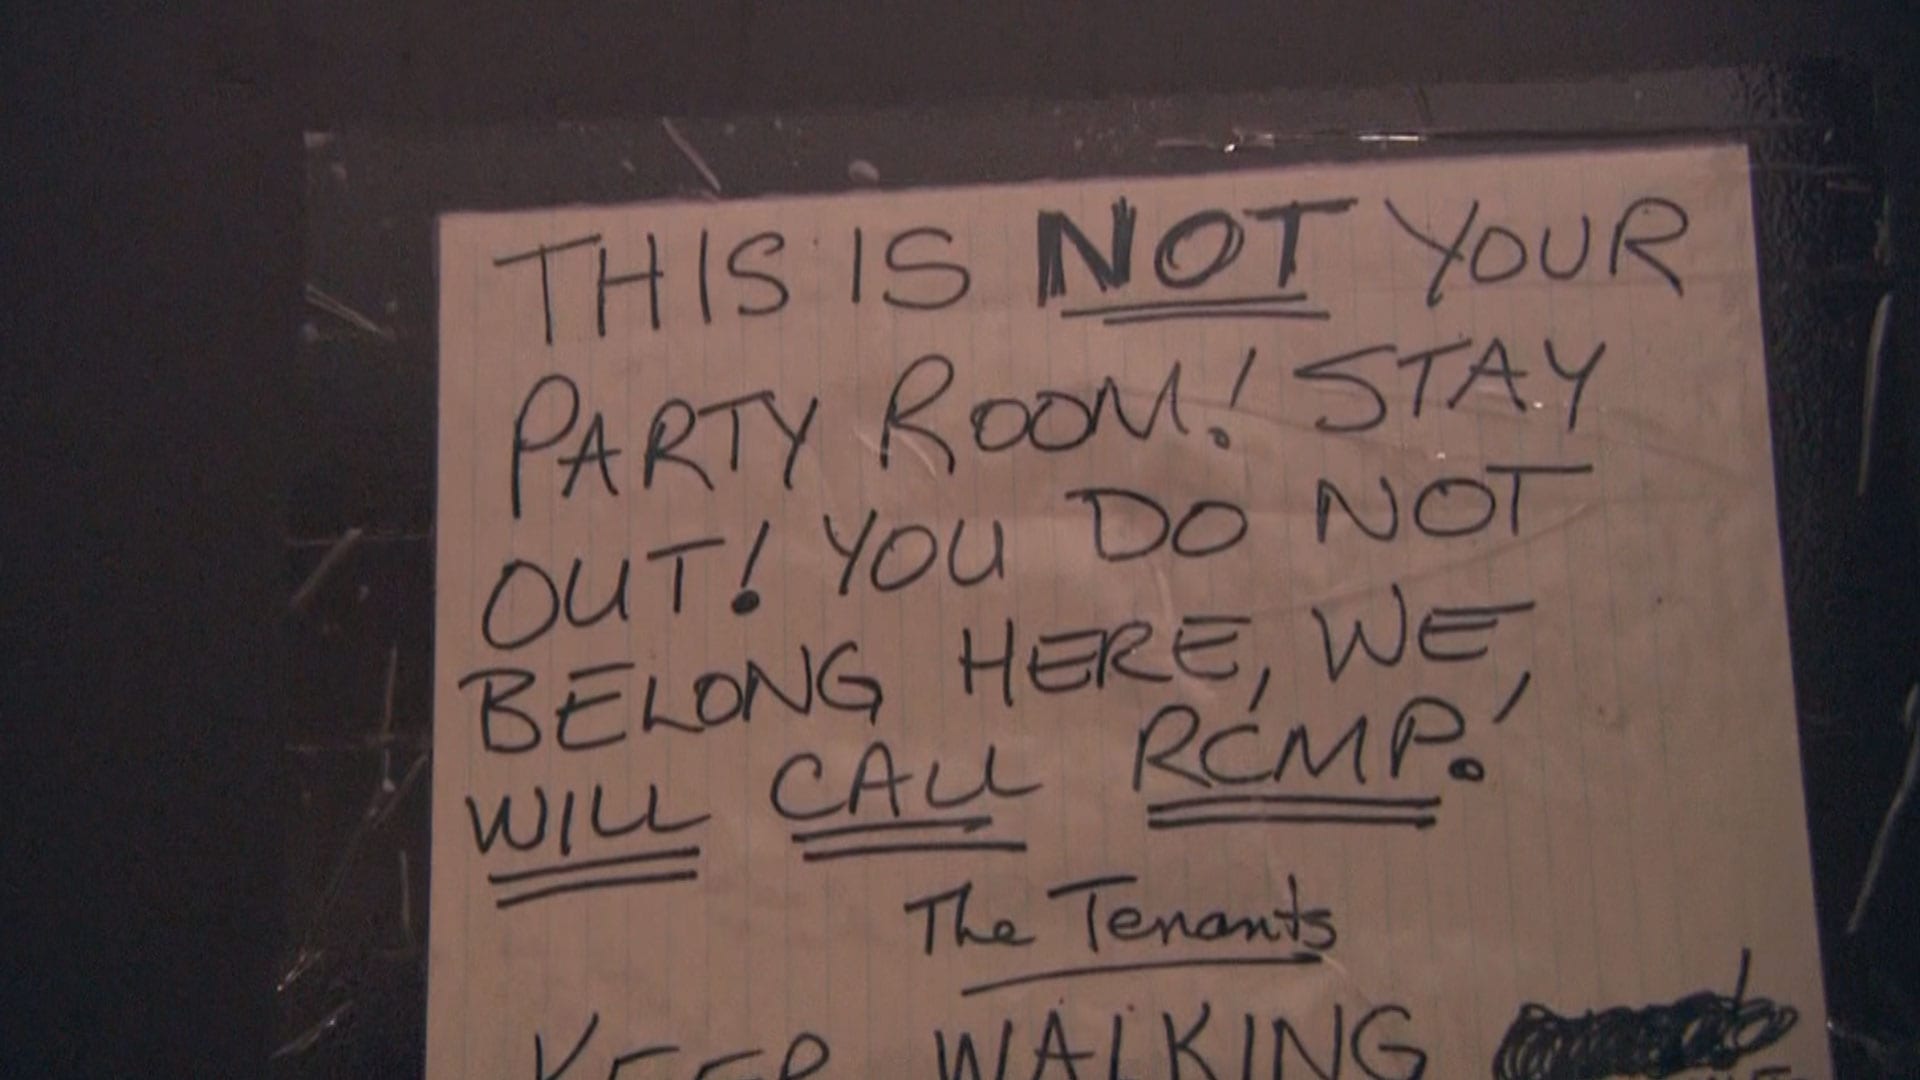 THIS IS NOT YOUR
PARTY ROOM! STAY
OUT! YOU DO NOT
BELONG HERE, WE,
WILL CALL RCMP!
The Tenants
KEEP WALKING